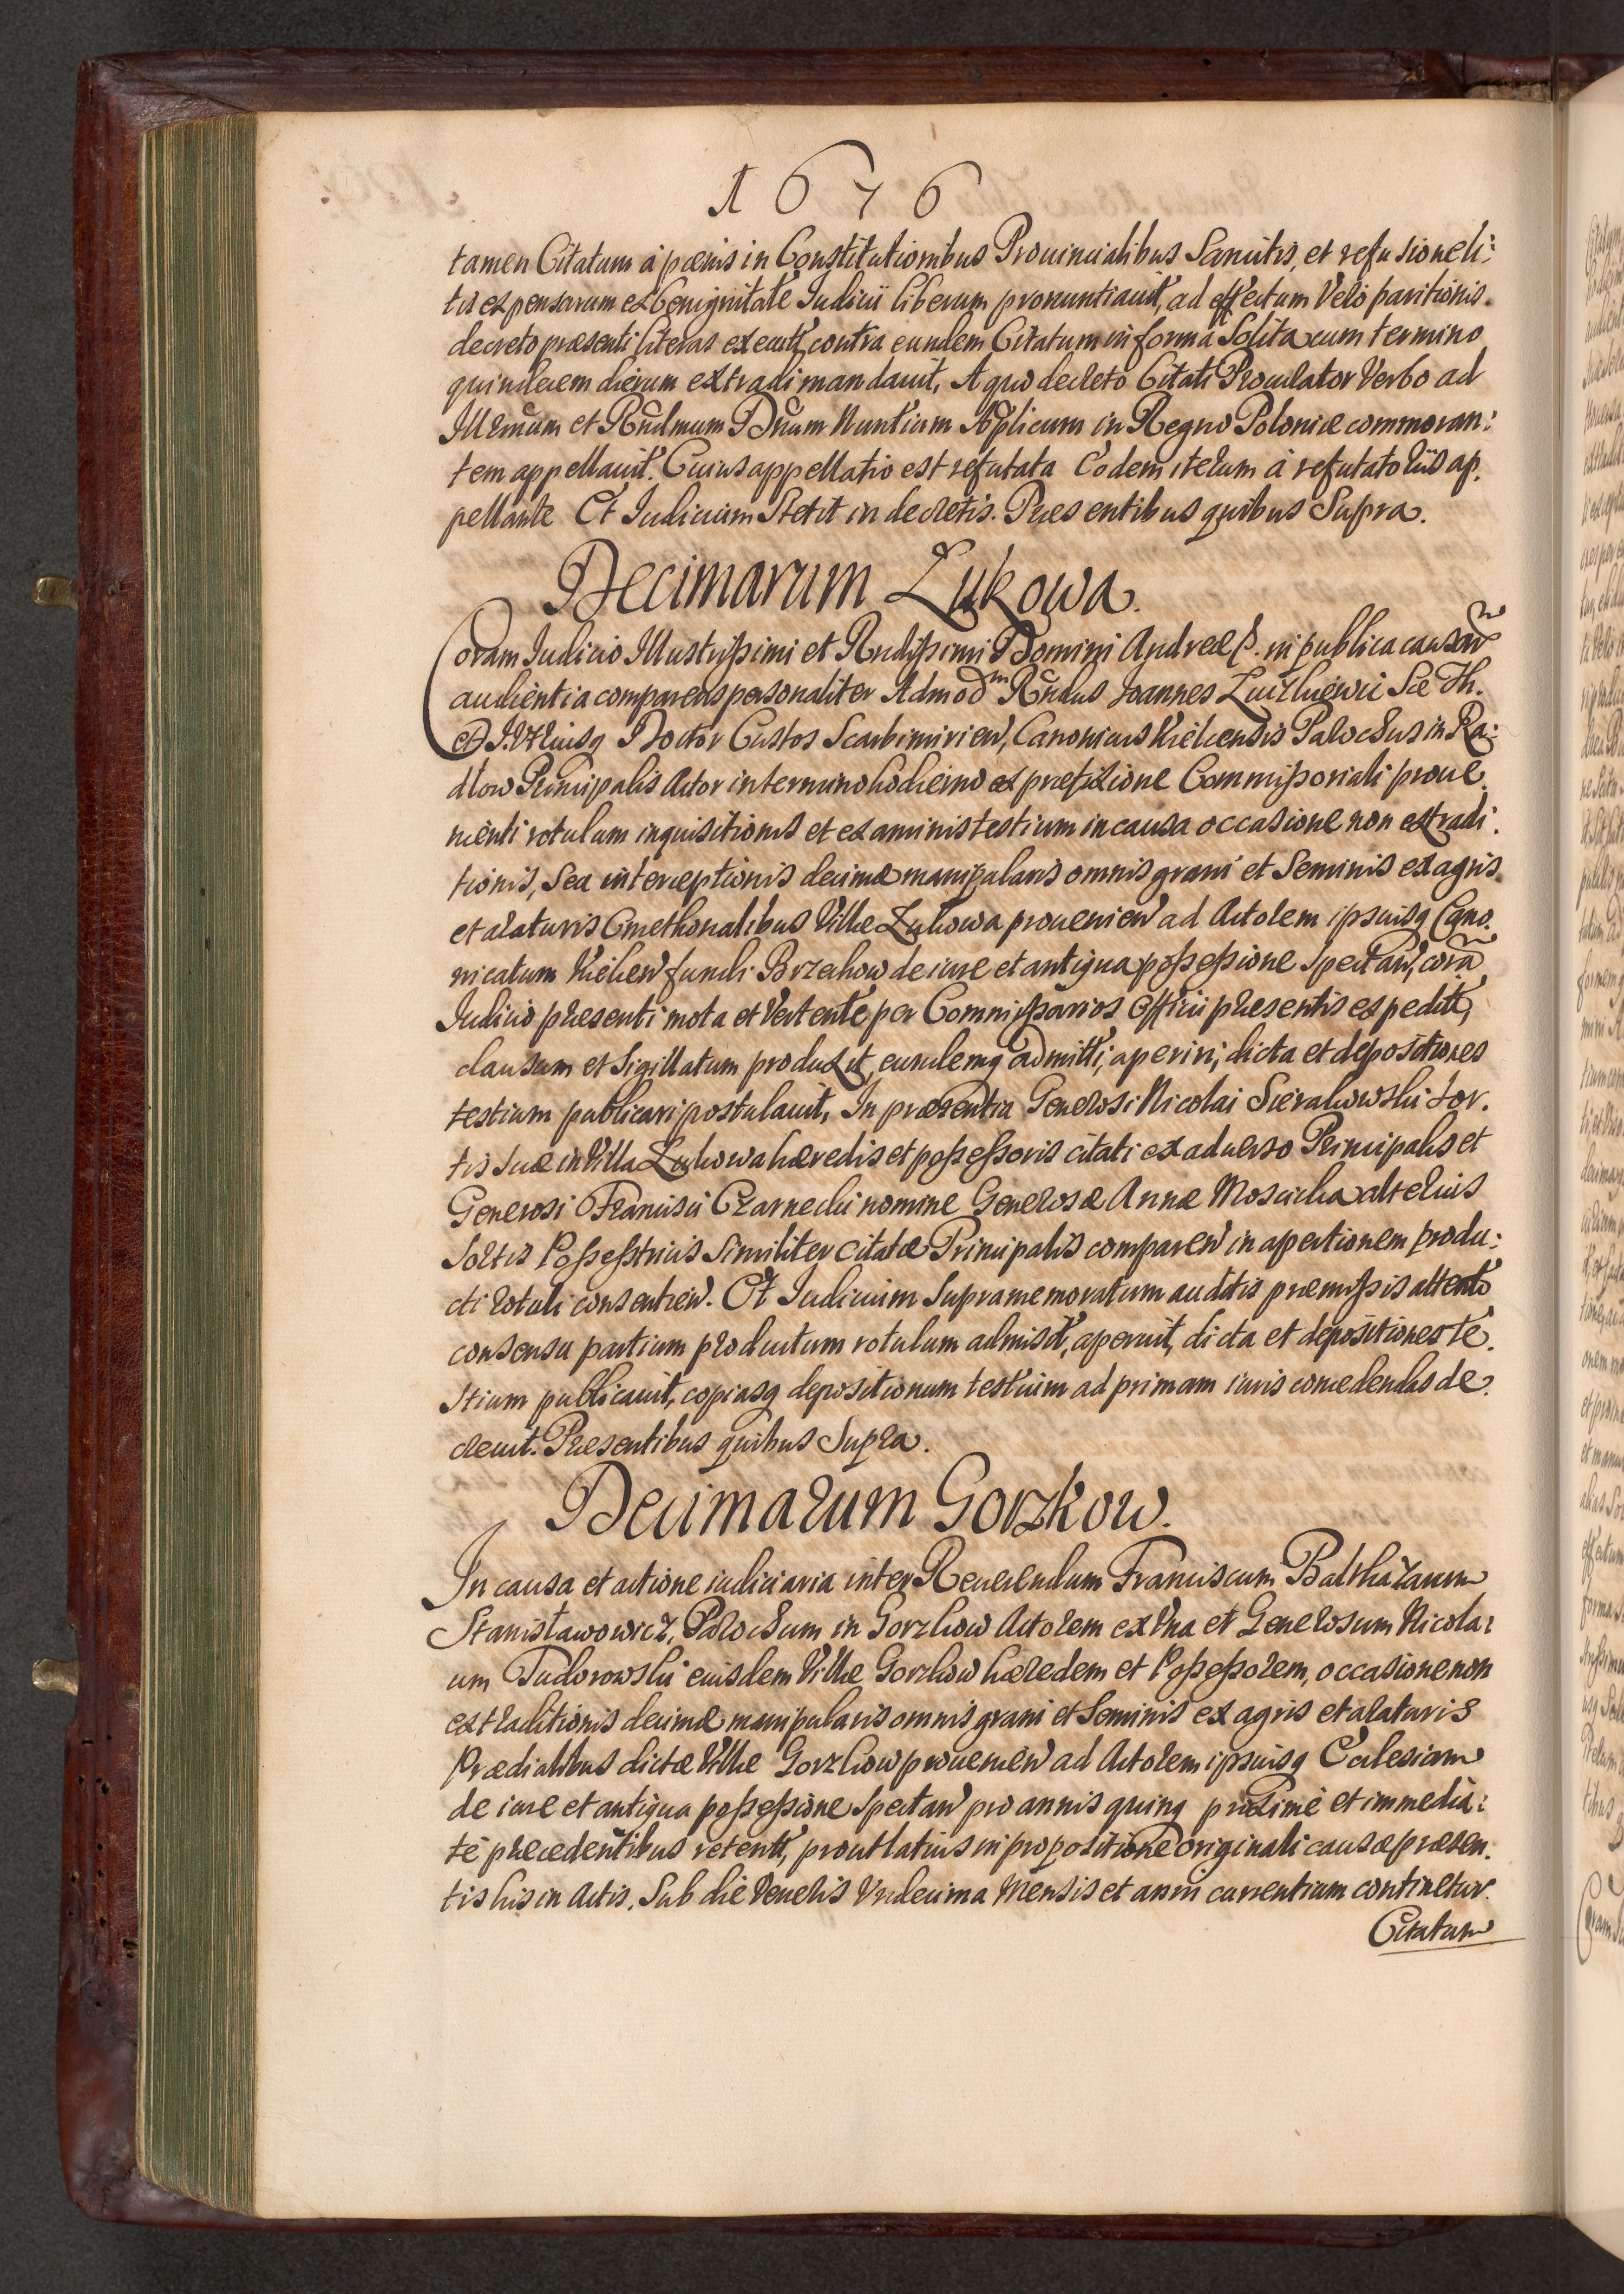 1676
tamen Citatum à pœnis in Constitutionibus Prouincialibus Sancitis, et refusione li:
tis expensarum ex benignitate Iudicii liberum pronuntiauit, ad effectum Vero paritionis
decreto præsenti literas execut̃ contra eundem Citatum in forma Solita cum termino
quindecem dierum extradi mandauit, A quo decreto Citati Procurator Verbo ad
Illr̃mum et Rñdmum Dñum Nuntium Ap̃licum in Regno Poloniæ commoran:
tem appellauit. Cuius appellatio est refutata Eodem iterum à refutatoriis ap.
pellante Et Iudicium Stetit in decretis. Præsentibus quibus Supra.
Decimarum Łukowa.
Coram Iudicio Illustrissimi et Rñdissimi Domini Andreæ &. in publica causar̃
audientia comparens personaliter Admod^m Rñdus Joannes Sæ Th.
et I. Vtriusq Doctor Custos Scarbimirien̄, Canonicus Kielcensis Parochus in Ra:
dłow Principalis Actor in termino hodierno ex præfixione Commissoriali proue
nienti rotulum inquisitionis et examinis testium in causa occasione non extradi.
tionis, Seu interceptionis decimæ manipularis omnis grani et Seminis ex agris
et araturis Cmethonalibus Villæ Łukowa prouenien̄ ad Actorem ipsuisq Cano.
nicatum Kielcen̄ fundi Brzechow de iure et antiqua possessione Spectan̄, corã
Iudicio præsenti mota et Vertente per Commissarios Officii præsentis expedit̃,
clausum et Sigillatum produxit, eundemq admitti, aperiri, dicta et depositiones
testium publicari postulauit, In præsentia Generosi Nicolai Sierakowski Sor.
tis Suæ in Villa Łukowa hæredis et possessoris citati ex aduerso Principalis et
Generosi Francisci Czarnecki nomine Generosæ Annæ Moscicka alterius
Sortis Possestricis Similiter citatæ Principalis comparen̄ in apertionem produ:
cti rotuli consentien̄. Et Iudicium Supramemoratum auditis præmissis attento
consensu partium productum rotulum admisit, aperuit, dicta et depositiones te.
stium publicauit, copiasq depositionum testium ad primam iuris concedendas de.
creuit. Præsentibus quibus Supra.
Decimarum Gorzkow.
In causa et actione iudiciaria inter Reuerendum Franciscum Balthazarum
Stanisławowicz, Parochum in Gorzkow Actorem ex Vna et Generosum Nicola:
um Fudorowski eiusdem Villæ Gorzkow hæredem et Possessorem, occasione non
extraditionis decimæ manipularis omnis grani et Seminis ex agris et araturis
Prædialibus dictæ Villæ Gorzkow prouenien̄ ad Actorem ipsuisq Ecclesiam
de iure et antiqua possessione Spectan̄ pro annis quinq proximè et immedia:
tè præcedentibus retent̃, prout latius in propositione originali causæ præsen.
tis his in Actis, Sub die Veneris Vndecima Mensis et anni currentium continetur.
Citatum